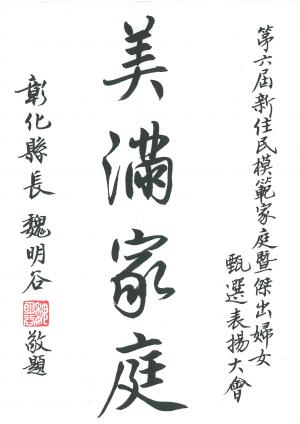 第六屆新住民模範家庭暨傑出婦女
甄選表揚大會
美滿家庭
彰化縣長魏明谷敬題